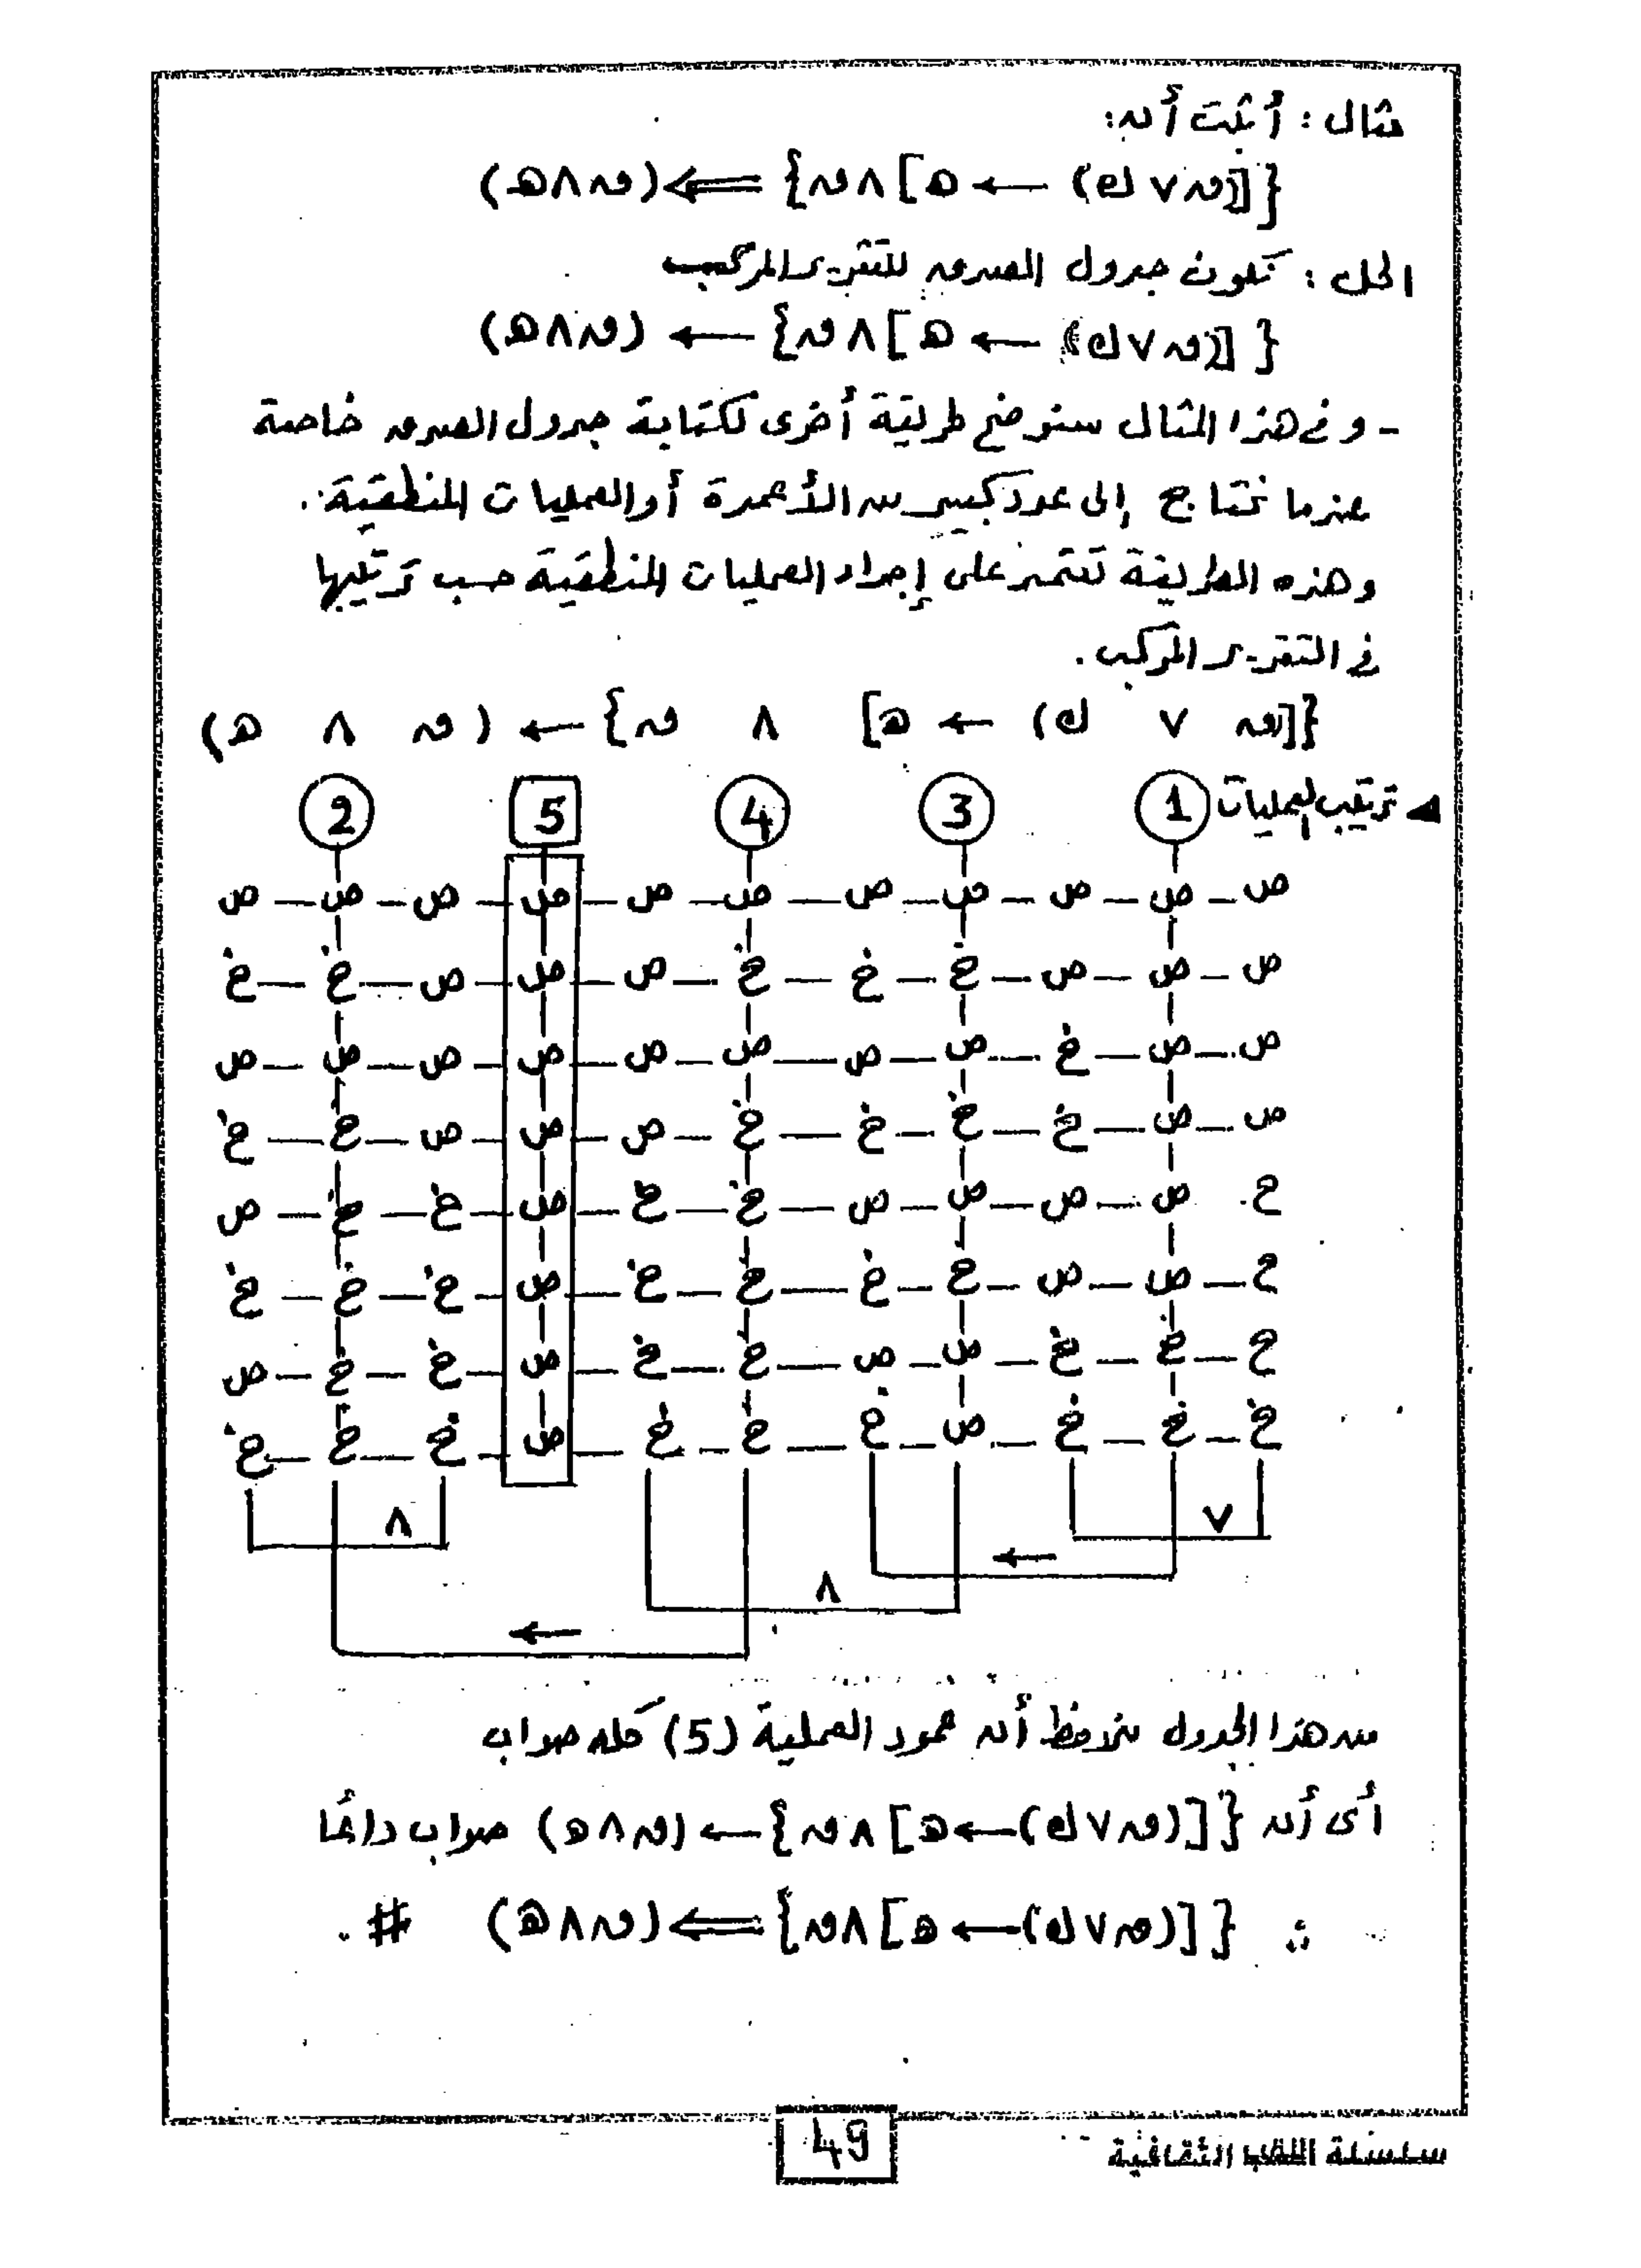 مثال : أثبت أن:
{[(ن ∨ ك) ← ه] ∧ ن} ⇐ (ن ∧ ه)
الحل : نكون جدول الصدق للتقرير المركب
{[(ن ∨ ك) ← ه] ∧ ن} ← (ن ∧ ه)
- وفى هذا المثال سنوضح طريقة أخرى لكتابة جدول الصدق خاصة
عندما نحتاج إلى عدد كبير من الأعمدة أو العمليات المنطقية .
وهذه الطريقة تعتمد على إجراء العمليات المنطقية حسب ترتيبها
فى التقرير المركب .
{[(ن ∨ ك) ← ه] ∧ ن} ← (ن ∧ ه)
◄ ترتيب العمليات 1 3 4 5 2
ص – ص – ص – ص – ص – ص – ص – ص – ص – ص – ص
ص – ص – ص – خ – خ – خ – ص – ص – ص – خ – خ
ص – ص – خ – ص – ص – ص – ص – ص – ص – ص – ص
ص – ص – خ – خ – خ – خ – ص – ص – ص – خ – خ
خ ص – ص – ص – ص – خ – خ – ص – خ – خ – ص
خ – ص – ص – خ – خ – خ – خ – ص – خ – خ – خ
خ – خ – خ – ص – ص – خ – خ – ص – خ – خ – ص
خ – خ – خ – ص – خ – خ – خ – ص – خ – خ – خ
∨ ∧
←
∧
←
من هذا الجدول نلاحظ أن عمود العملية (5) كله صواب
أى أن {[(ن ∨ ك) ← ه] ∧ ن} ← (ن ∧ ه) صواب دائمًا
∴ {[(ن ∨ ك) ← ه] ∧ ن} ⇐ (ن ∧ ه) # .
49
سلسلة اللقاء الثقافية